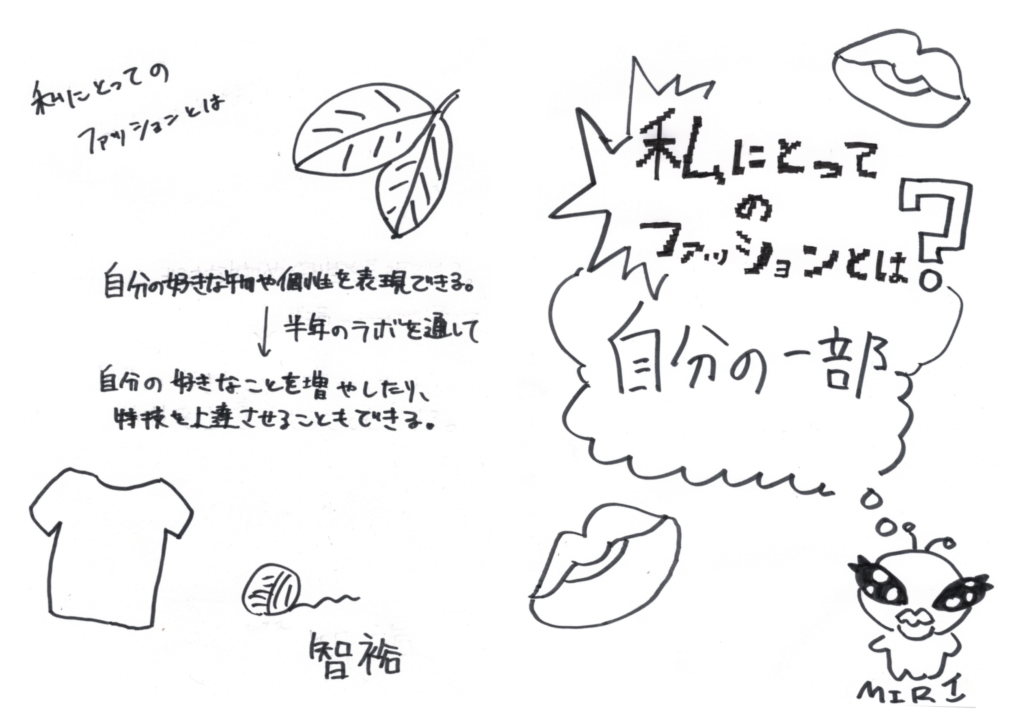 私にとっての
ファッションとは
自分の好きな物や個性を表現できる。
↓半年のラボを通して
自分の好きなことを増やしたり、
特技を上達させることもできる。
智裕
私にとって
の
ファッションとは?
自分の一部